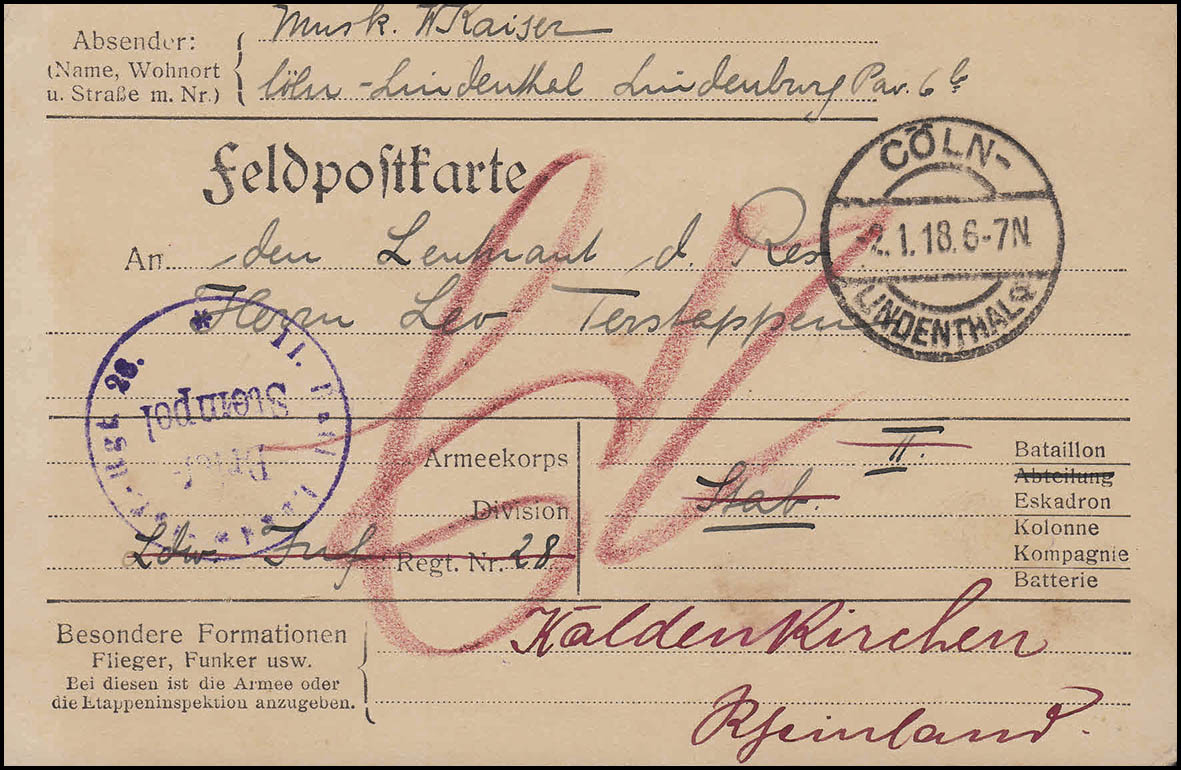 Absender:
(Name, Wohnort
u. Straße m. Nr.)
Musk. W Kaiser
Cöln-Lindenthal Lindenburg Pav. 6b
Feldpostkarte
CÖLN-
-2.1.18.6-7N.
LINDENTHAL
An den Leutnant d. Res
Herrn Leo Terstappen
Brief
Stempel
Armeekorps
Division
Ldw. Inf. Regt. Nr. 28
II. Bataillon
Abteilung
Stab. Eskadron
Kolonne
Kompagnie
Batterie
Besondere Formationen
Flieger, Funker usw.
Bei diesen ist die Armee oder
die Etappeninspektion anzugeben.
Kaldenkirchen
Rheinland.